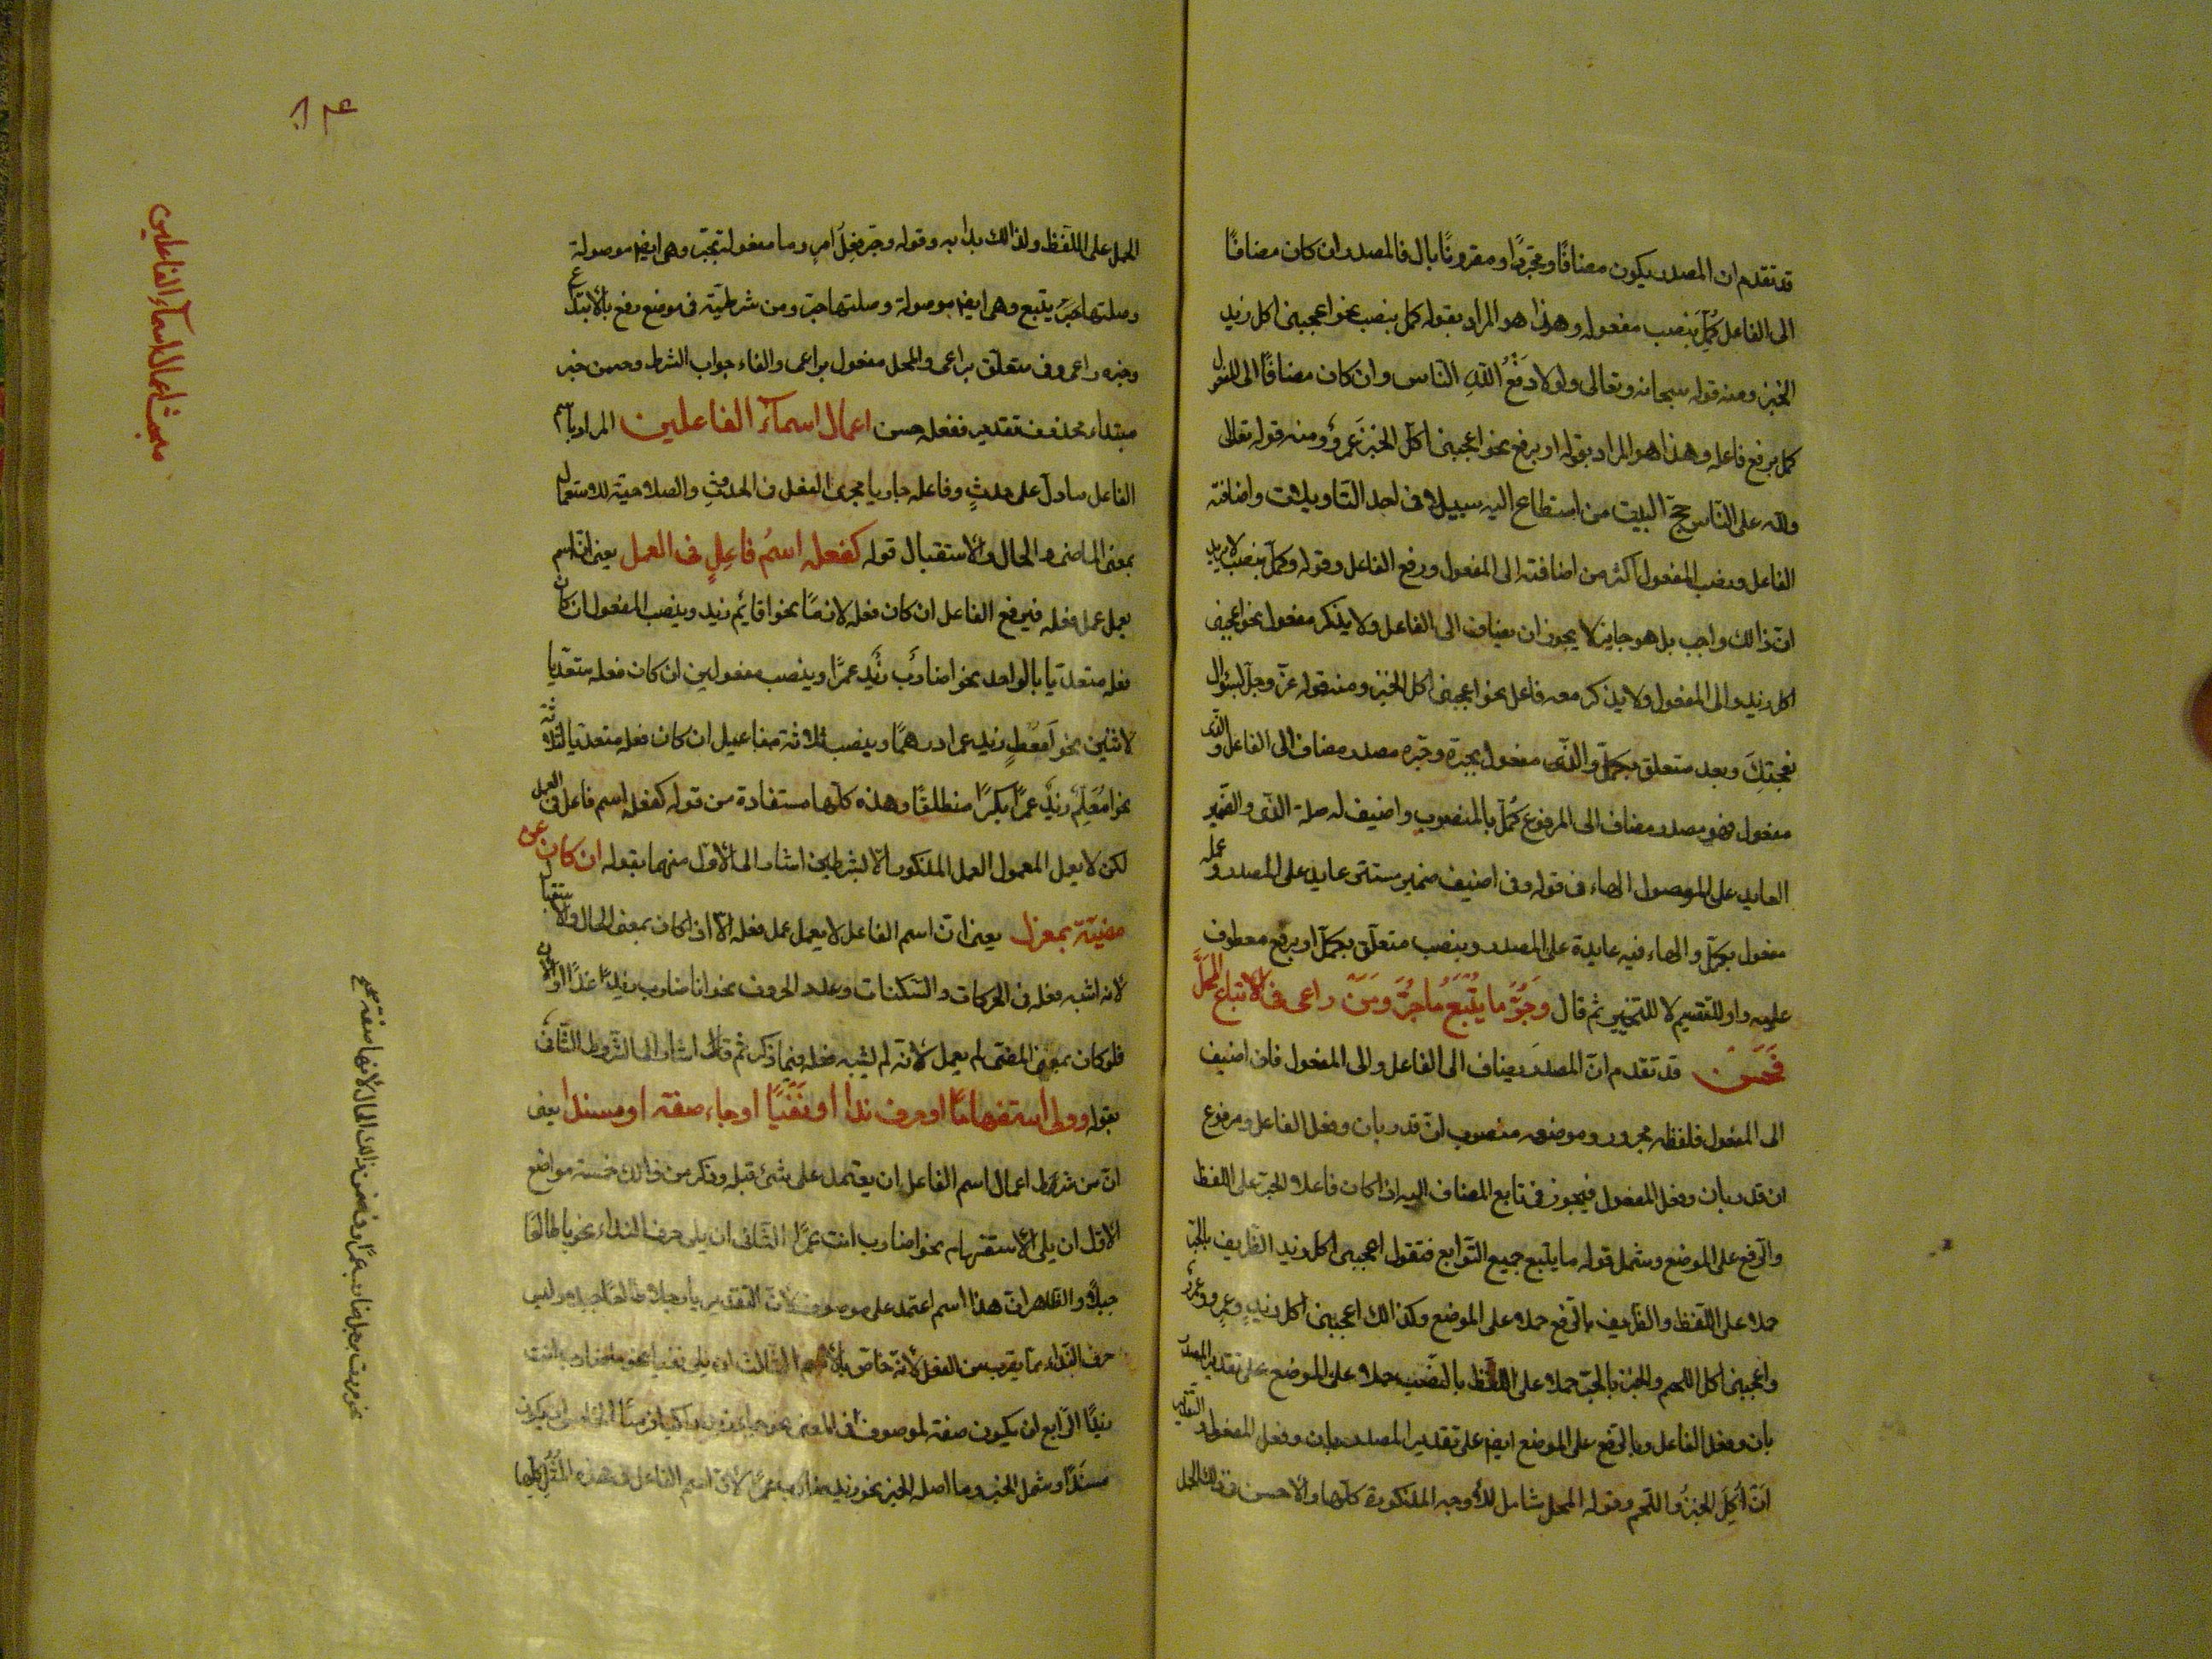 قد تقدم ان المصدر يكون مضافًا ومجردًا ومقرونًا بال فالمصدر ان كان مضافًا
الى الفاعل كُمِّل بنصب مفعوله وهذا هو المراد بقوله كمل بنصب نحو اعجبنى اكل زيد
الخبز ومنه قوله سبحانه وتعالى ولولا دَفْعُ اللّٰهِ النّاس وان كان مضافًا الى المفعول
كمل برفع فاعله وهذا هو المراد بقوله او برفع نحو اعجبنى اكل الخبز عَمرٌو ومنه قوله تعالى
ولله على النّاس حجّ البيت من استطاع اليه سبيلا فى احد التاويلات واضافته
الفاعل ونصب المفعول اكثر من اضافته الى المفعول ورفع الفاعل وقوله وكمّل بنصب لا يريد
انّ ذالك واجب بل هو جايز لا يجوز ان يضاف الى الفاعل ولا يذكر مفعول نحو اعجبنى
اكل زيد والى المفعول ولا يذكر معه فاعل نحو اعجبنى اكل الخبز ومنه قوله عزّ وجلّ لسؤال
نعجتِكَ وبعد متعلق بكمّل والّذى مفعول بجرّه وجرّه مصدر مضاف الى الفاعل والّذى
مفعول وهو مصدر مضاف الى المرفوع كُمّل بالمنصوب واضيف له صلة الذى والضمير
العايد على الموصول الهاء فى قوله وفى اضيف ضمير مستتر عايد على المصدر وعمله
مفعول بكمّل والهاء فيه عايدة على المصدر وبنصب متعلّق بكمّل او برفع معطوف
عليه واو للتقسيم لا للتخيير ثم قال وَجُرَّ ما يَتْبَعُ ما جُرَّ وَمَنْ راعى فى الاتباع المحلَّ
فَحَسَن قد تقدم انّ المصدر يضاف الى الفاعل والى المفعول فان اضيف
الى المفعول فلفظه مجرور وموضعه منصوب ان قدر بان وفعل الفاعل ومرفوع
ان قدر بان وفعل المفعول فيجوز فى تابع المضاف اليه اذا كان فاعلا الجر على اللفظ
والرّفع على الموضع وشمل قوله ما يتبع جميع التّوابع فتقول اعجبنى اكل زيد الظريف بالجر
حملا على اللّفظ والظريف بالرّفع حملا على الموضع وكذالك اعجبنى اكل زيدٍ وعمرٍو وعمرٌو
واعجبنى اكل اللحم والخبز بالجرّ حملا على اللّفظ بالنّصب حملا على الموضع على تقدير المصدر
بان وفعل الفاعل وبالرفع على الموضع ايضا على تقدير المصدر بان وفعل المفعول والتقدير
اَنْ اُكِلَ الخبزُ واللحم وقوله المحل شامل للأوجه المذكورة كلّها والاحسن فى ذالك الحمل
الحمل على اللّفظ ولذالك بدا به وقوله وجرّ فعل امر وما مفعولة بجرّ وهى ايضا موصولة
وصلتها يتبع وهى ايضا موصولة وصلتها جرّ ومن شرطيّة فى موضع رفع بالابتداء
وخبره راعى وفى متعلّق براعى والمحل مفعول براعى والفاء جواب الشرط وحسن خبر
مبتداء محذوف تقديره ففعله حسن اعمال اسمآء الفاعلين المراد باسم
الفاعل ما دلّ على حدثٍ وفاعله جاريا مجرى الفعل فى الحدوث والصلاحية للاستعمال
بمعنى الماضى والحال والاستقبال قوله كفعله اسمُ فاعِلٍ فى العمل يعنى انّ اسم
يعمل عمل فعله فيرفع الفاعل ان كان فعله لازمًا نحو اقائم زيد وينصب المفعول ان كان
فعله متعدّيا بالواحد نحو اضاربٌ زيدٌ عمرًا وينصب مفعولين ان كان فعله متعدّيا
لاثنين نحو اَمُعْطٍ زيد عمرا درهمًا وينصب ثلاثة مفاعيل ان كان فعله متعدّيا لثلاثة
نحو امُعَلِّمٌ زيدٌ عمرًا بكرًا منطلقًا وهذه كلّها مستفادة من قوله كفعله اسم فاعل فى العمل
لكن لا يعمل المعمول العمل المذكور الّا بشرطين اشار الى الاوّل منهما بقوله ان كان عن
مضيّه بمعزل يعنى انّ اسم الفاعل لا يعمل عمل فعله الّا اذا كان بمعنى الحال والاستقبال
لانه اشبه فعله فى الحركات والسّكنات وعدد الحروف نحو انا ضارب زيدًا غدًا او الآن
فلو كان بمعنى المضى لم يعمل لانّه لم يشبه فعله فيما ذكر ثم قال اشار الى الشّروط الثّانى
بقوله وولى استفهامًا او حرف ندا او نَفْيًا او جاء صفة او مسندا يعنى
انّ من شرط اعمال اسم الفاعل ان يعتمد على شئ قبله وذكر من ذالك خمسة مواضع
الاوّل ان يلى الاستفهام نحو اضارب انت عمرًا الثّانى ان يلى حرف النداء نحو يا طالعًا
جبلًا والظاهر انّ هذا اسم اعتمد على موصوف لانّ التقدير يا رجلا طالعًا جبلا وليس
حرف النّداء ممّا يقرب من الفعل لانّه خاصّ بالاسم الثالث ان يلى نفيا نحو ما ضارب انت
زيدًا الرّابع ان يكون صفة لموصوف الخامس ان يكون
مسندًا وشمل الخبر وما اصله الخبر نحو زيد ضارب عمرًا لانّ اسم الفاعل فى هذه المثل كلّها
مبحث اعمال اسمآء الفاعلين